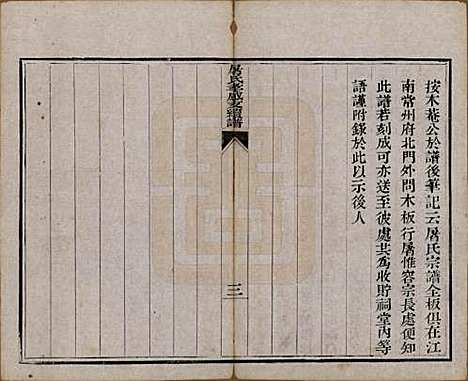 按木菴公於譜後筆記云屠氏宗譜全板俱在江
南常州府北門外問木板行屠惟容宗長處便知
此譜若刻成可亦送至彼處共爲收貯祠堂內等
語謹附錄於此以示後人
屠氏毘陵支續譜
三